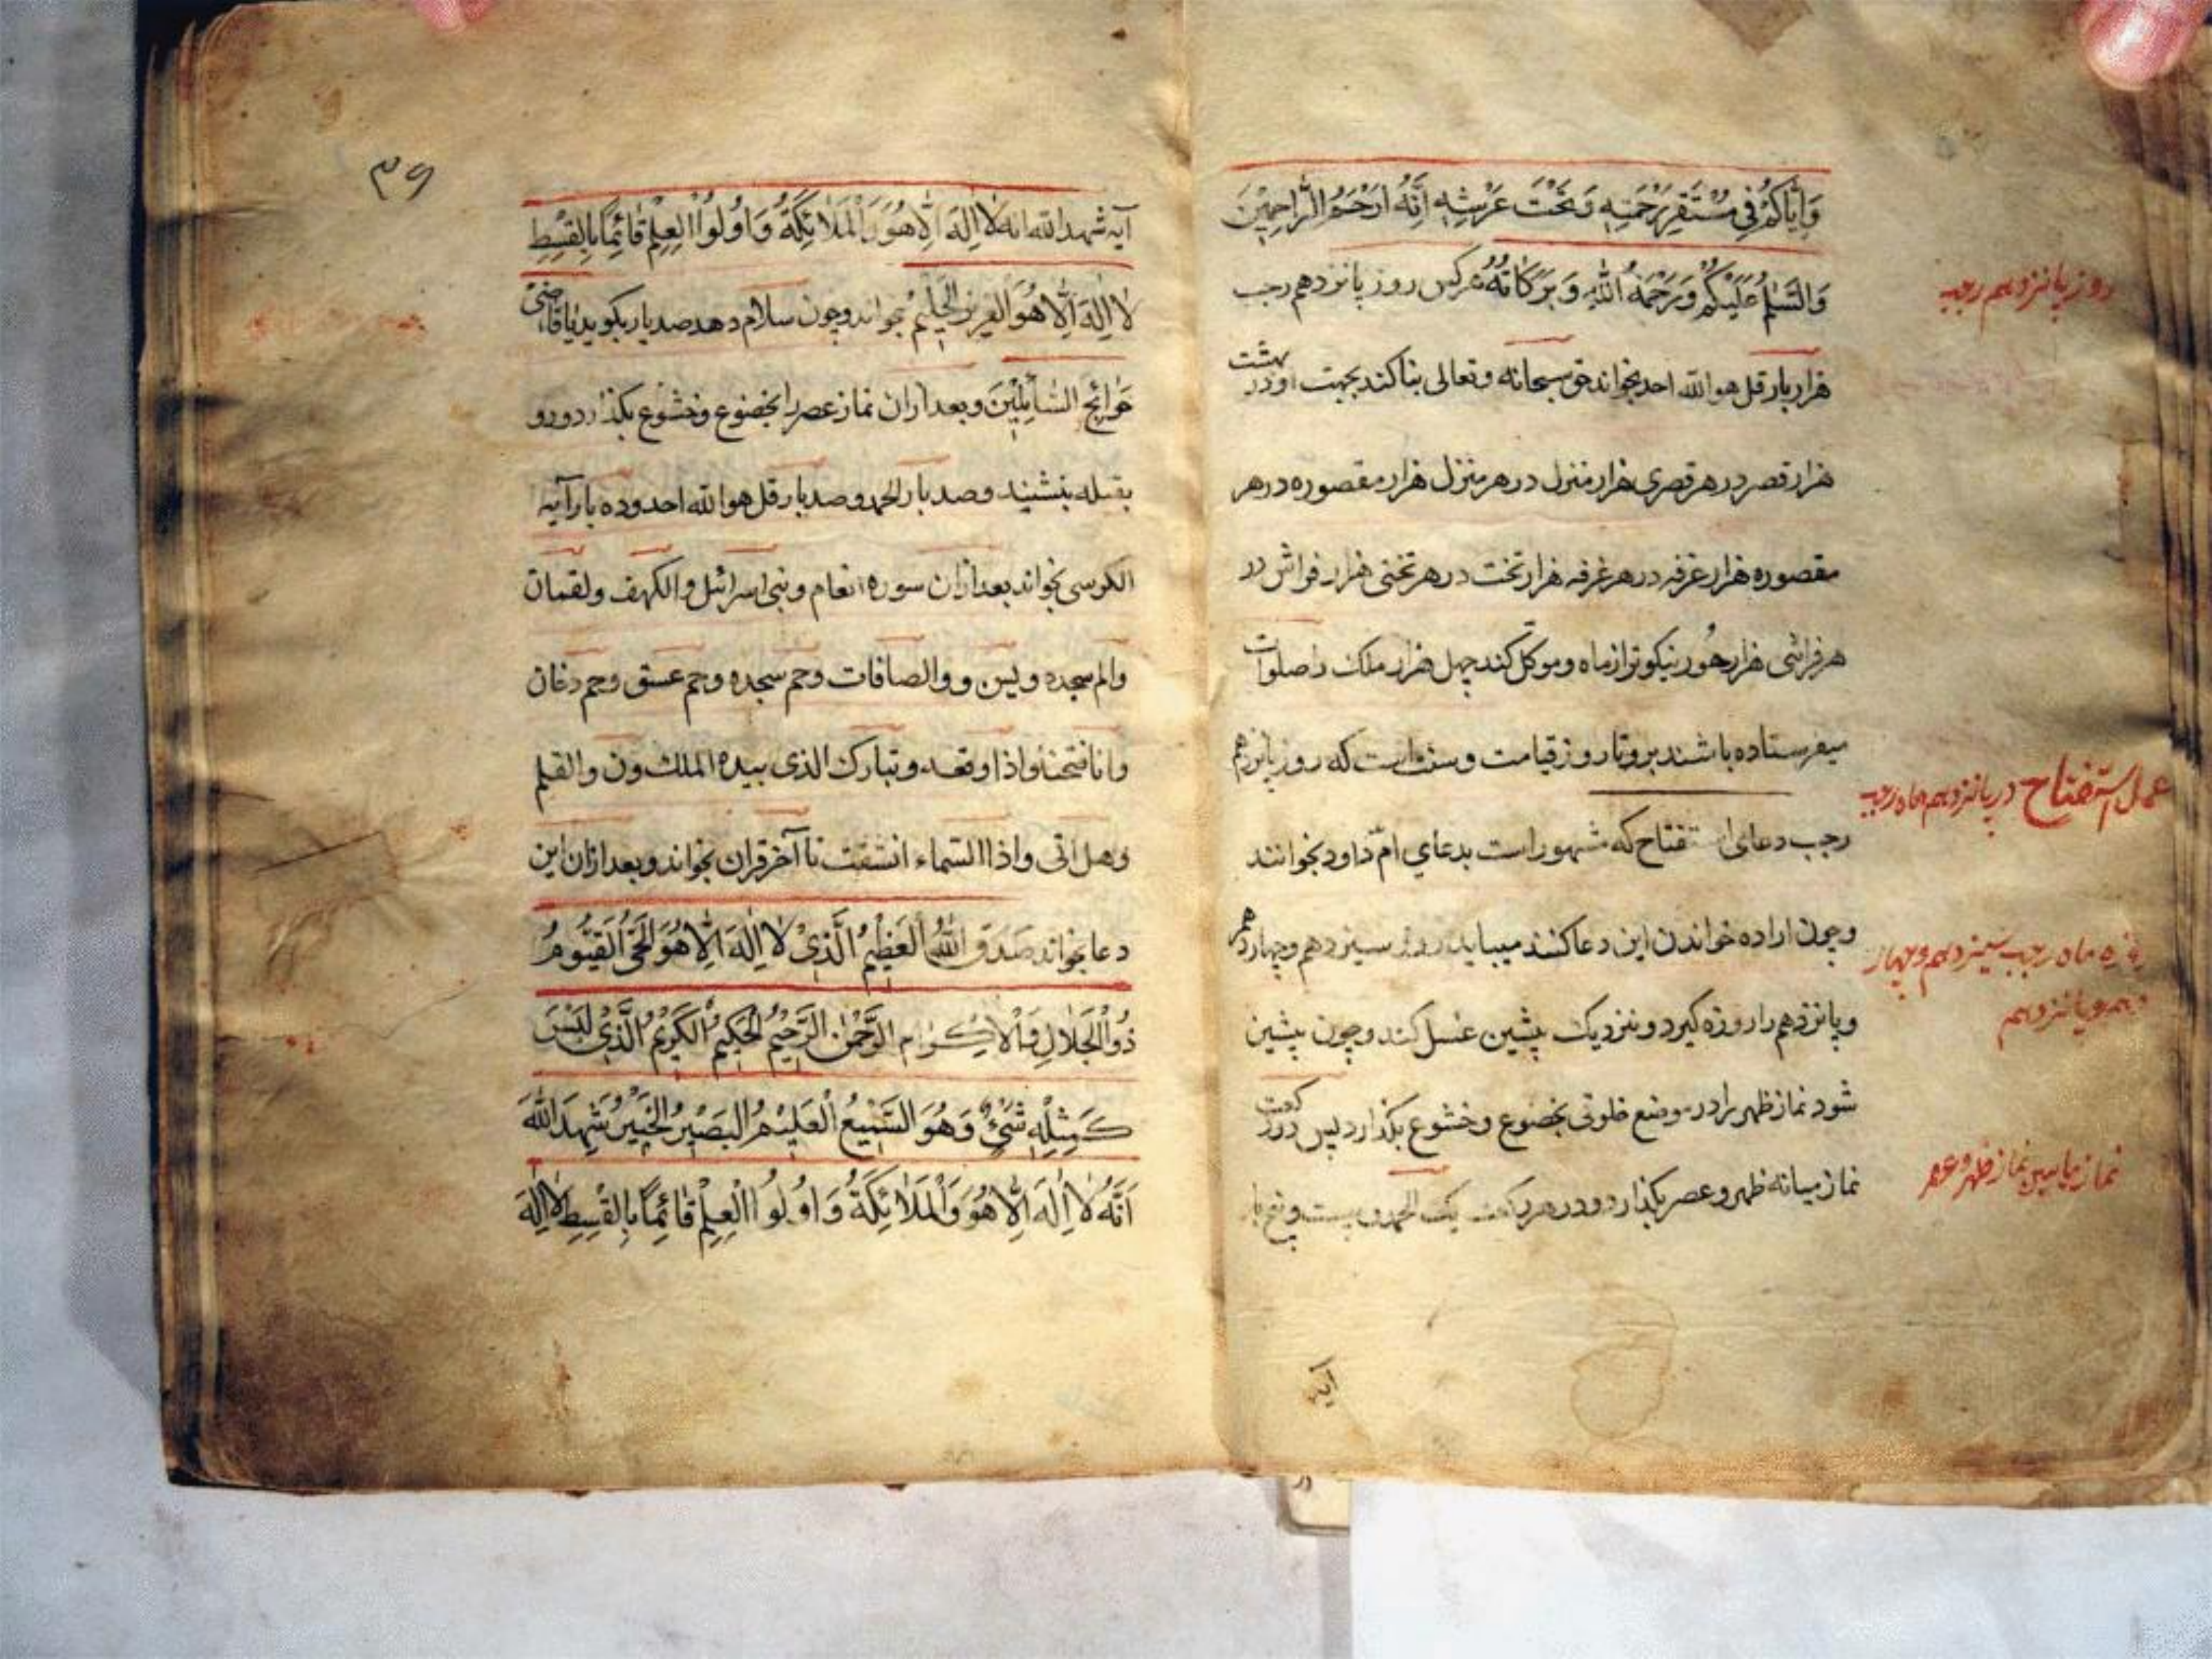 وَاِيَّاكُمْ فِي مُسْتَقَرِّ رَحْمَتِهِ وَتَحْتَ عَرْشِهِ اِنَّهُ اَرْحَمُ الرَّاحِمِيْنَ
وَالسَّلٰمُ عَلَيْكُمْ وَرَحْمَةُ اللّٰهِ وَبَرَكَاتُهُ هركس روز پانزدهم رجب
روز پانزدهم رجب
هزار بار قل هو الله احد بخواند حق سبحانه وتعالى بنا كند بجهت او در بهشت
هزار قصر در هر قصرى هزار منزل در هر منزل هزار مقصوره در هر
مقصوره هزار غرفه در هر غرفه هزار تخت در هر تختى هزار فراش در
هر فراشى هزار حُور نيكوتر از ماه وموكل كند چهل هزار ملك را صلوات
ميفرستاده باشند برو تا روز قيامت وسنت است كه روز پانزدهم
عمل استفتاح در پانزدهم ماه رجب
رجب دعاى استفتاح كه مشهور است بدعاي امّ داود بخوانند
وچون اراده خواندن اين دعا كنند ميبايد روز سيزدهم وچهاردهم
روزه ماه رجب سيزدهم وچهار
دهم وپانزدهم
وپانزدهم را روزه گيرد ونزديك پيشين غسل كند وچون پيشين
شود نماز ظهر را در موضع خلوتى بخضوع وخشوع بگذارد پس دو ركعت
نماز مابين نماز ظهر وعصر
نماز ميانه ظهر وعصر بگذارد ودر هر ركعت يك الحمد وبيست وپنج بار
آيه
٣٩
آيه شهد الله انه لَا اِلٰهَ اِلَّا هُوَ وَالْمَلَائِكَةُ وَاُولُوا الْعِلْمِ قَائِمًا بِالْقِسْطِ
لَا اِلٰهَ اِلَّا هُوَ الْعَزِيزُ الْحَكِيْمُ بخواند وچون سلام دهد صد بار بگويد يَا قَاضِيَ
حَوَائِجِ السَّائِلِيْنَ وبعد ازان نماز عصر را بخضوع وخشوع بگذارد ورو
بقبله بنشيند وصد بار الحمد وصد بار قل هو الله احد وده بار آيه
الكرسى بخواند بعد ازان سوره انعام وبنى اسرائيل والكهف ولقمان
والم سجده ويس ووالصافات وحم سجده وحم عسق وحم دخان
وانا فتحنا واذا وقعت وتبارك الذى بيده الملك ون والقلم
وهل اتى واذا السماء انشقت تا آخر قران بخواند وبعد ازان اين
دعا بخواند صَدَقَ اللّٰهُ الْعَظِيْمُ الَّذِيْ لَا اِلٰهَ اِلَّا هُوَ الْحَيُّ الْقَيُّوْمُ
ذُو الْجَلَالِ وَالْاِكْرَامِ الرَّحْمٰنُ الرَّحِيْمُ الْحَكِيْمُ الْكَرِيْمُ الَّذِيْ لَيْسَ
كَمِثْلِهِ شَيْءٌ وَهُوَ السَّمِيْعُ الْعَلِيْمُ الْبَصِيْرُ الْخَبِيْرُ شَهِدَ اللّٰهُ
اَنَّهُ لَا اِلٰهَ اِلَّا هُوَ وَالْمَلَائِكَةُ وَاُولُوا الْعِلْمِ قَائِمًا بِالْقِسْطِ لَا اِلٰهَ